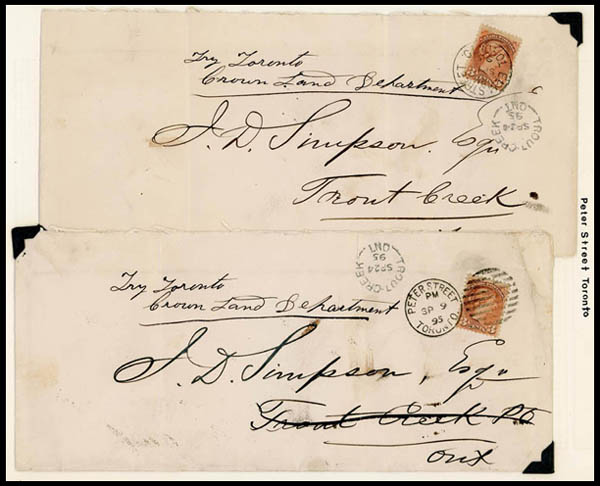 Try Toronto
Crown Land Department
J. D. Simpson. Esqr
Trout Creek.
TROUT-CREEK
SP 24
95
ONT
Peter Street Toronto
TROUT-CREEK
SP 24
95
ONT
Try Toronto
Crown Land Department
PETER STREET
PM
SP 9
95
TORONTO.
J. D. Simpson, Esqr
Trout Creek P.O
Ont